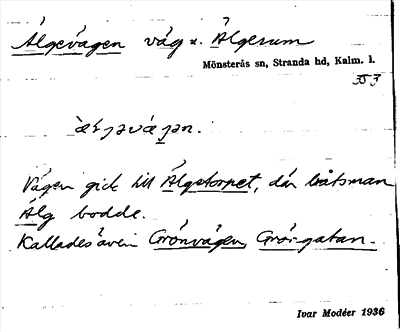 Älgevägen väg v. Älgerum
Mönsterås sn, Stranda hd, Kalm. l.
353
Vägen gick till Älgetorpet, där båtsman
Älg bodde.
Kallades även Grönvägen, Gröngatan.
Ivar Modéer 1936